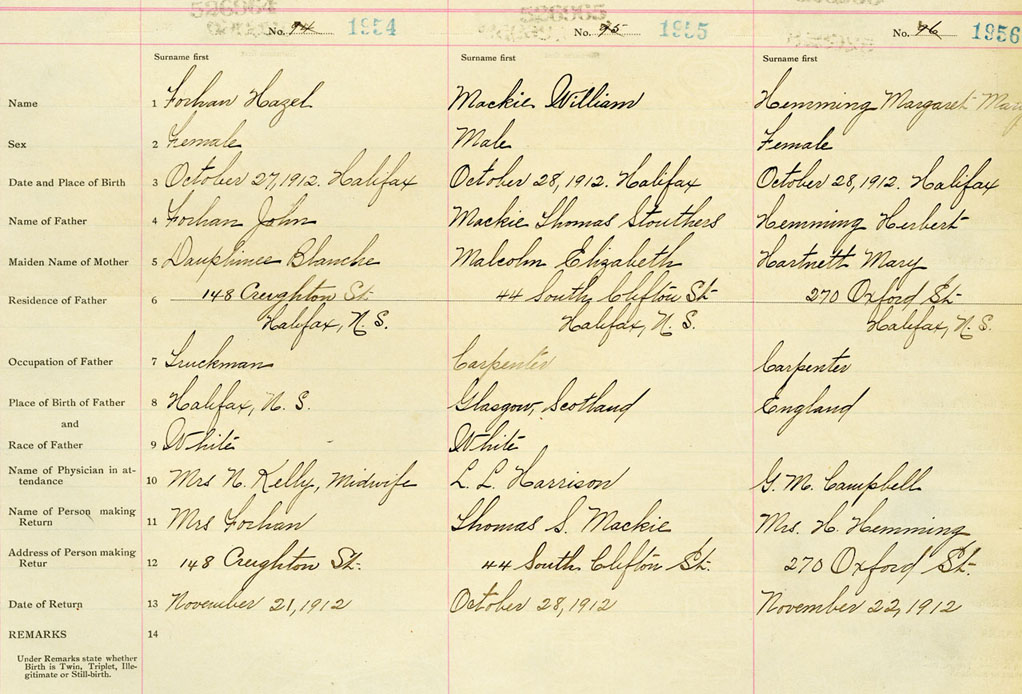 526964 526965
No. 94 1954 No. 95 1955 No. 96 1956
Surname first Surname first Surname first
Name 1 Forhan Hazel Mackie William Hemming Margaret Mary
Sex 2 Female Male Female
Date and Place of Birth 3 October 27, 1912. Halifax October 28, 1912. Halifax October 28, 1912. Halifax
Name of Father 4 Forhan John Mackie Thomas Stouthers Hemming Herbert
Maiden Name of Mother 5 Dauphinee Blanche Malcolm Elizabeth Hartnett Mary
Residence of Father 6 148 Creighton St. 44 South Clifton St. 270 Oxford St.
Halifax, N. S. Halifax, N. S. Halifax, N. S.
Occupation of Father 7 Truckman Carpenter Carpenter
Place of Birth of Father 8 Halifax, N. S. Glasgow, Scotland England
and
Race of Father 9 White White
Name of Physician in at-
tendance 10 Mrs N. Kelly, Midwife L. L. Harrison G. M. Campbell
Name of Person making
Return 11 Mrs Forhan Thomas S. Mackie Mrs. H. Hemming
Address of Person making
Retur 12 148 Creighton St. 44 South Clifton St. 270 Oxford St.
Date of Return 13 November 21, 1912 October 28, 1912 November 22, 1912
REMARKS 14
Under Remarks state whether
Birth is Twin, Triplet, Ille-
gitimate or Still-birth.